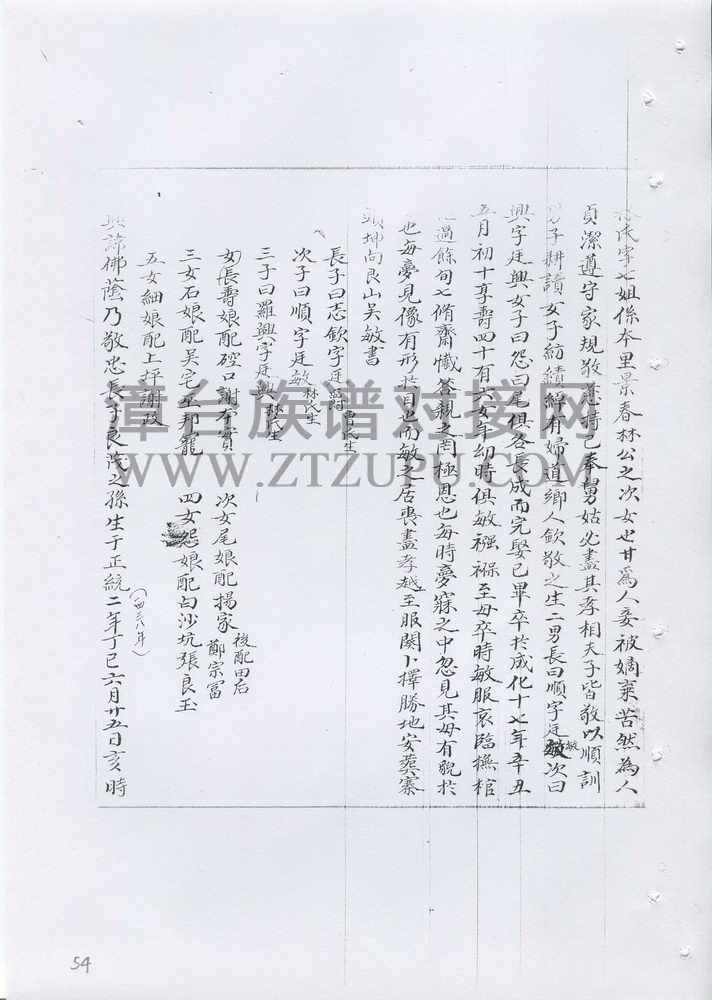 林氏字七姐係本里景春林公之次女也甘為人妾被嫡棄苦然為人
貞潔遵守家規敬慈持己奉舅姑必盡其孝相夫子皆敬以順訓
男子耕讀女子紡績綽有婦道鄉人欽敬之生二男長曰順字廷敏次曰
興字廷興女子曰怨曰尾俱各長成而完娶已畢卒於成化十七年辛丑
五月初十享壽四十有六女年幼時俱敏襁褓至母卒時敏服衰臨撫棺
過餘旬七脩齋懺答親之罔極恩也每時夢寐之中忽見其母有貌於
也每夢見像有形於目也而敏之居喪盡孝越至服闋卜擇勝地安葬寨
頭坤向艮山吳敏書
長子曰志欽字廷爵曹氏生
次子曰順字廷敏林氏生
三子曰羅興字廷興林氏生
女長壽娘配礤口謝本實 次女尾娘配揚家後配田后鄭宗富
三女石娘配吳宅巫邦寵 四女怨娘配白沙坑張良玉
五女細娘配上坪謝政
興諱佛蔭乃敬忠長子良茂之孫生于正統二年丁巳六月廿五日亥時
(一四三八年)
漳台族谱对接网
WWW.ZTZUPU.COM
54